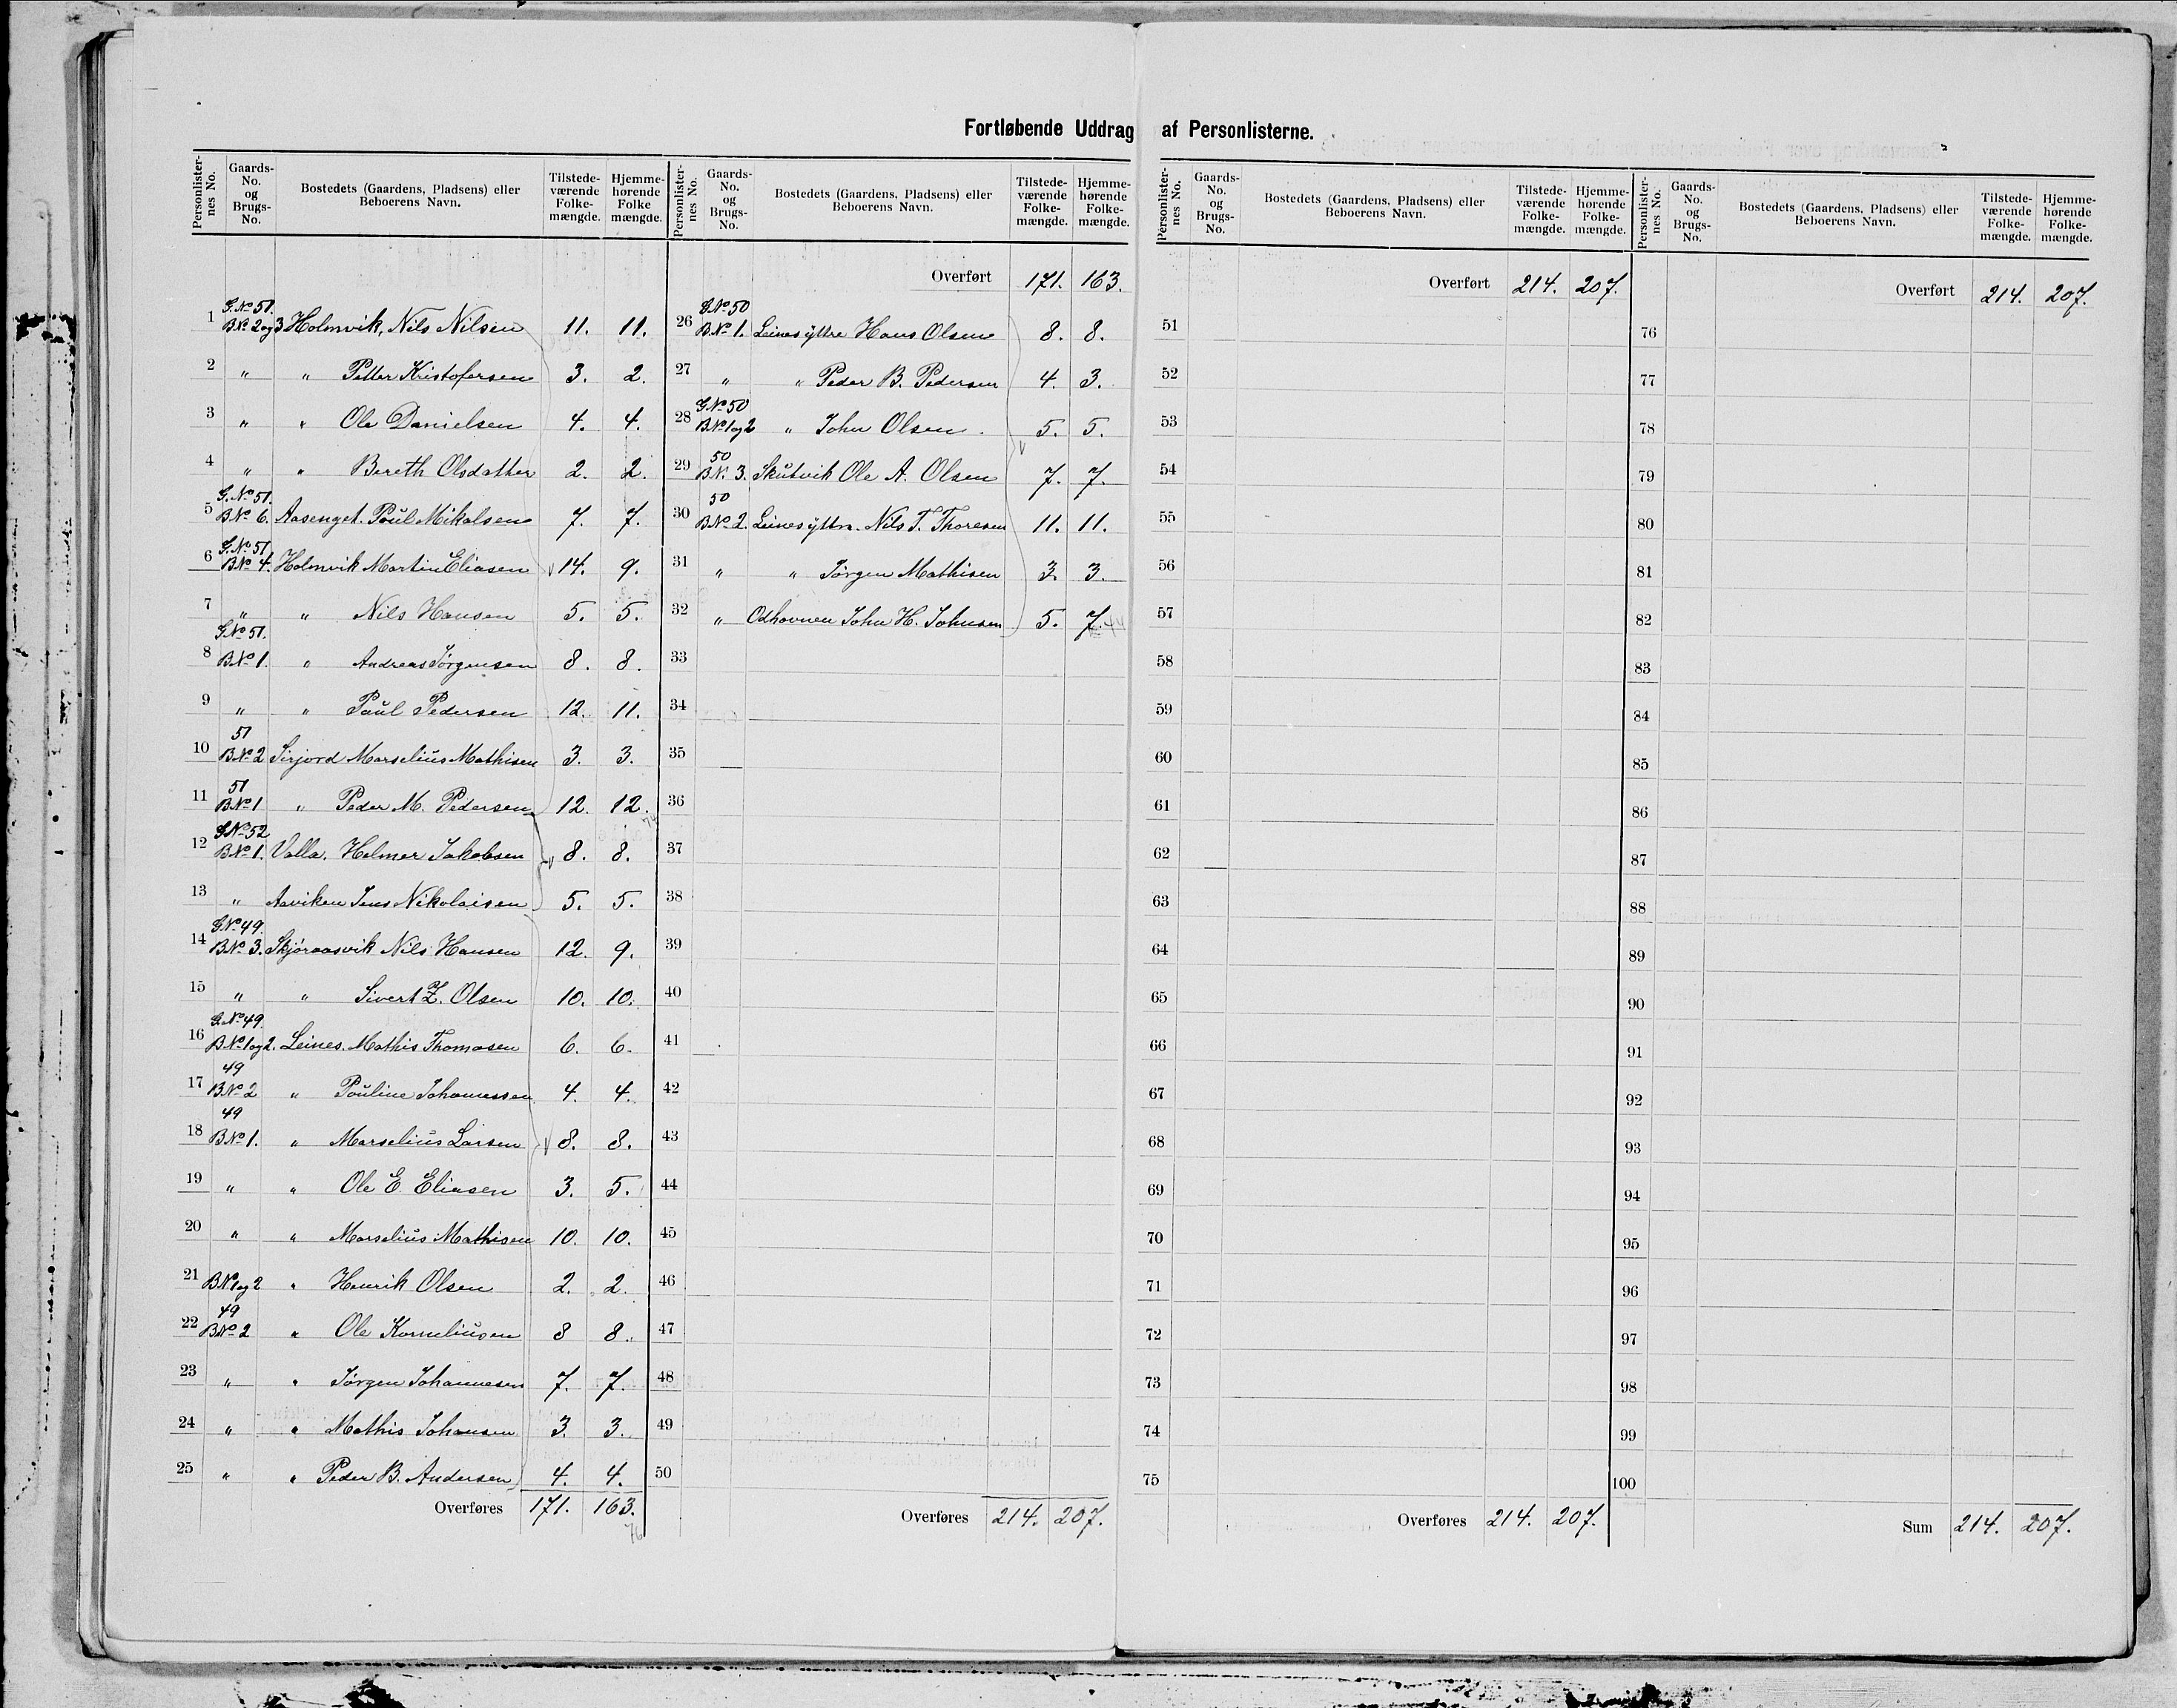 Fortløbende Uddrag af Personlisterne.
Personlisternes No. | Gaards-No. og Brugs-No. | Bostedets (Gaardens, Pladsens) eller Beboerens Navn. | Tilstedeværende Folkemængde. | Hjemmehørende Folkemængde.
1 G.No 51. B.No 2 og 3 Holmvik, Nils Nilsen 11. 11.
2 " " Petter Kristofersen 3. 2.
3 " " Ole Danielsen 4. 4.
4 " " Bereth Olsdatter 2. 2.
5 G.No 51. B.No 6. Aasenget. Poul Mikalsen 7. 7.
6 G.No 51 B.No 4. Holmvik Martin Eliasen 14. 9.
7 " " Nils Hansen 5. 5.
8 G.No 51. B.No 1. " Andreas Jørgensen 8. 8.
9 " " Paul Pedersen 12. 11.
10 51 B.No 2 Sirjord Marselius Mathisen 3. 3.
11 51 B.No 1 " Peder M. Pedersen 12. 12.
12 G.No 52 B.No 1. Valla. Helmer Jakobsen 8. 8.
13 " Aaviken Jens Nikolaisen 5. 5.
14 G.No 49. B.No 3. Skjøraasvik Nils Hansen 12. 9.
15 " " Sivert Z. Olsen 10. 10.
16 G.No 49. B.No 1 og 2. Leines. Mathis Thomasen 6. 6.
17 49 B.No 2 " Pouline Johannessen 4. 4.
18 49 B.No 1. " Marselius Larsen 8. 8.
19 " " Ole E. Eliasen 3. 5.
20 " " Marselius Mathisen 10. 10.
21 B.No 1 og 2 " Henrik Olsen 2. 2.
22 49 B.No 2 " Ole Korneliusen 8 8.
23 " " Jørgen Johannesen 7. 7.
24 " " Mathis Johansen 3. 3.
25 " " Peder B. Andersen 4. 4.
Overføres 171. 163.
76
Personlisternes No. | Gaards-No. og Brugs-No. | Bostedets (Gaardens, Pladsens) eller Beboerens Navn. | Tilstedeværende Folkemængde. | Hjemmehørende Folkemængde.
Overført 171. 163.
26 G.No 50 B.No 1. Leines yttre Hans Olsen 8. 8.
27 " " Peder B. Pedersen 4. 3.
28 G.No 50 B.No 1 og 2 " John Olsen 5. 5.
29 50 B.No 3. Skutvik Ole A. Olsen 7. 7.
30 50 B.No 2. Leines yttre. Nils T. Thoresen 11. 11.
31 " " Jørgen Mathisen 3. 3.
32 " Odhovnen John H. Johnsen 5. 7.
33
34
35
36
37
38
39
40
41
42
43
44
45
46
47
48
49
50
Overføres 214. 207.
Personlisternes No. | Gaards-No. og Brugs-No. | Bostedets (Gaardens, Pladsens) eller Beboerens Navn. | Tilstedeværende Folkemængde. | Hjemmehørende Folkemængde.
Overført 214. 207.
51
52
53
54
55
56
57
58
59
60
61
62
63
64
65
66
67
68
69
70
71
72
73
74
75
Overføres 214. 207.
Personlisternes No. | Gaards-No. og Brugs-No. | Bostedets (Gaardens, Pladsens) eller Beboerens Navn. | Tilstedeværende Folkemængde. | Hjemmehørende Folkemængde.
Overført 214. 207.
76
77
78
79
80
81
82
83
84
85
86
87
88
89
90
91
92
93
94
95
96
97
98
99
100
Sum 214. 207.